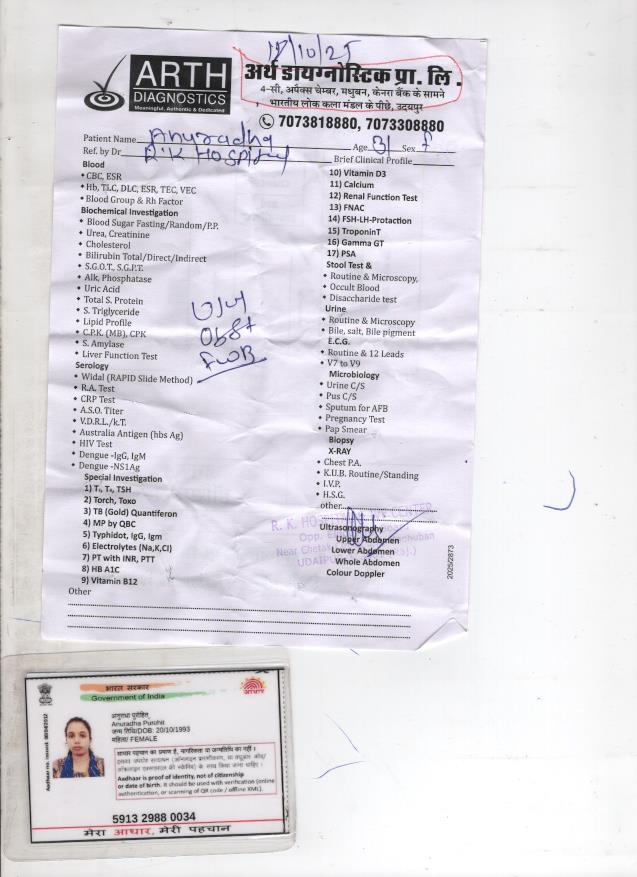 17/10/25
ARTH
DIAGNOSTICS
Meaningful, Authentic & Dedicated
अर्थ डायग्नोस्टिक प्रा. लि.
4-सी, अपैक्स चेम्बर, मधुबन, केनरा बैंक के सामने
भारतीय लोक कला मंडल के पीछे, उदयपुर
7073818880, 7073308880
Patient Name Anuradha Age 31 Sex F
Ref. by Dr R.K HOSPITAL Brief Clinical Profile
Blood
CBC, ESR
Hb, TLC, DLC, ESR, TEC, VEC
Blood Group & Rh Factor
Biochemical Investigation
Blood Sugar Fasting/Random/P.P.
Urea, Creatinine
Cholesterol
Bilirubin Total/Direct/Indirect
S.G.O.T., S.G.P.T.
Alk, Phosphatase
Uric Acid
Total S. Protein
S. Triglyceride
Lipid Profile
C.P.K. (MB), CPK
S. Amylase
Liver Function Test
Serology
Widal (RAPID Slide Method)
R.A. Test
CRP Test
A.S.O. Titer
V.D.R.L./k.T.
Australia Antigen (hbs Ag)
HIV Test
Dengue -IgG, IgM
Dengue -NS1Ag
Special Investigation
1) T₃, T₄, TSH
2) Torch, Toxo
3) TB (Gold) Quantiferon
4) MP by QBC
5) Typhidot, IgG, Igm
6) Electrolytes (Na,K,Cl)
7) PT with INR, PTT
8) HB A1C
9) Vitamin B12
Other
10) Vitamin D3
11) Calcium
12) Renal Function Test
13) FNAC
14) FSH-LH-Protaction
15) TroponinT
16) Gamma GT
17) PSA
Stool Test &
Routine & Microscopy,
Occult Blood
Disaccharide test
Urine
Routine & Microscopy
Bile, salt, Bile pigment
E.C.G.
Routine & 12 Leads
V7 to V9
Microbiology
Urine C/S
Pus C/S
Sputum for AFB
Pregnancy Test
Pap Smear
Biopsy
X-RAY
Chest P.A.
K.U.B. Routine/Standing
I.V.P.
H.S.G.
other
Ultrasonography
Upper Abdomen
Lower Abdomen
Whole Abdomen
Colour Doppler
U/S
Obst
FWB
2025/2873
भारत सरकार
Government of India
आधार
अनुराधा पुरोहित
Anuradha Purohit
जन्म तिथि/DOB: 20/10/1993
महिला/ FEMALE
आधार पहचान का प्रमाण है, नागरिकता या जन्मतिथि का नहीं।
Aadhaar is proof of identity, not of citizenship
or date of birth. It should be used with verification (online
authentication, or scanning of QR code / offline XML).
5913 2988 0034
मेरा आधार, मेरी पहचान